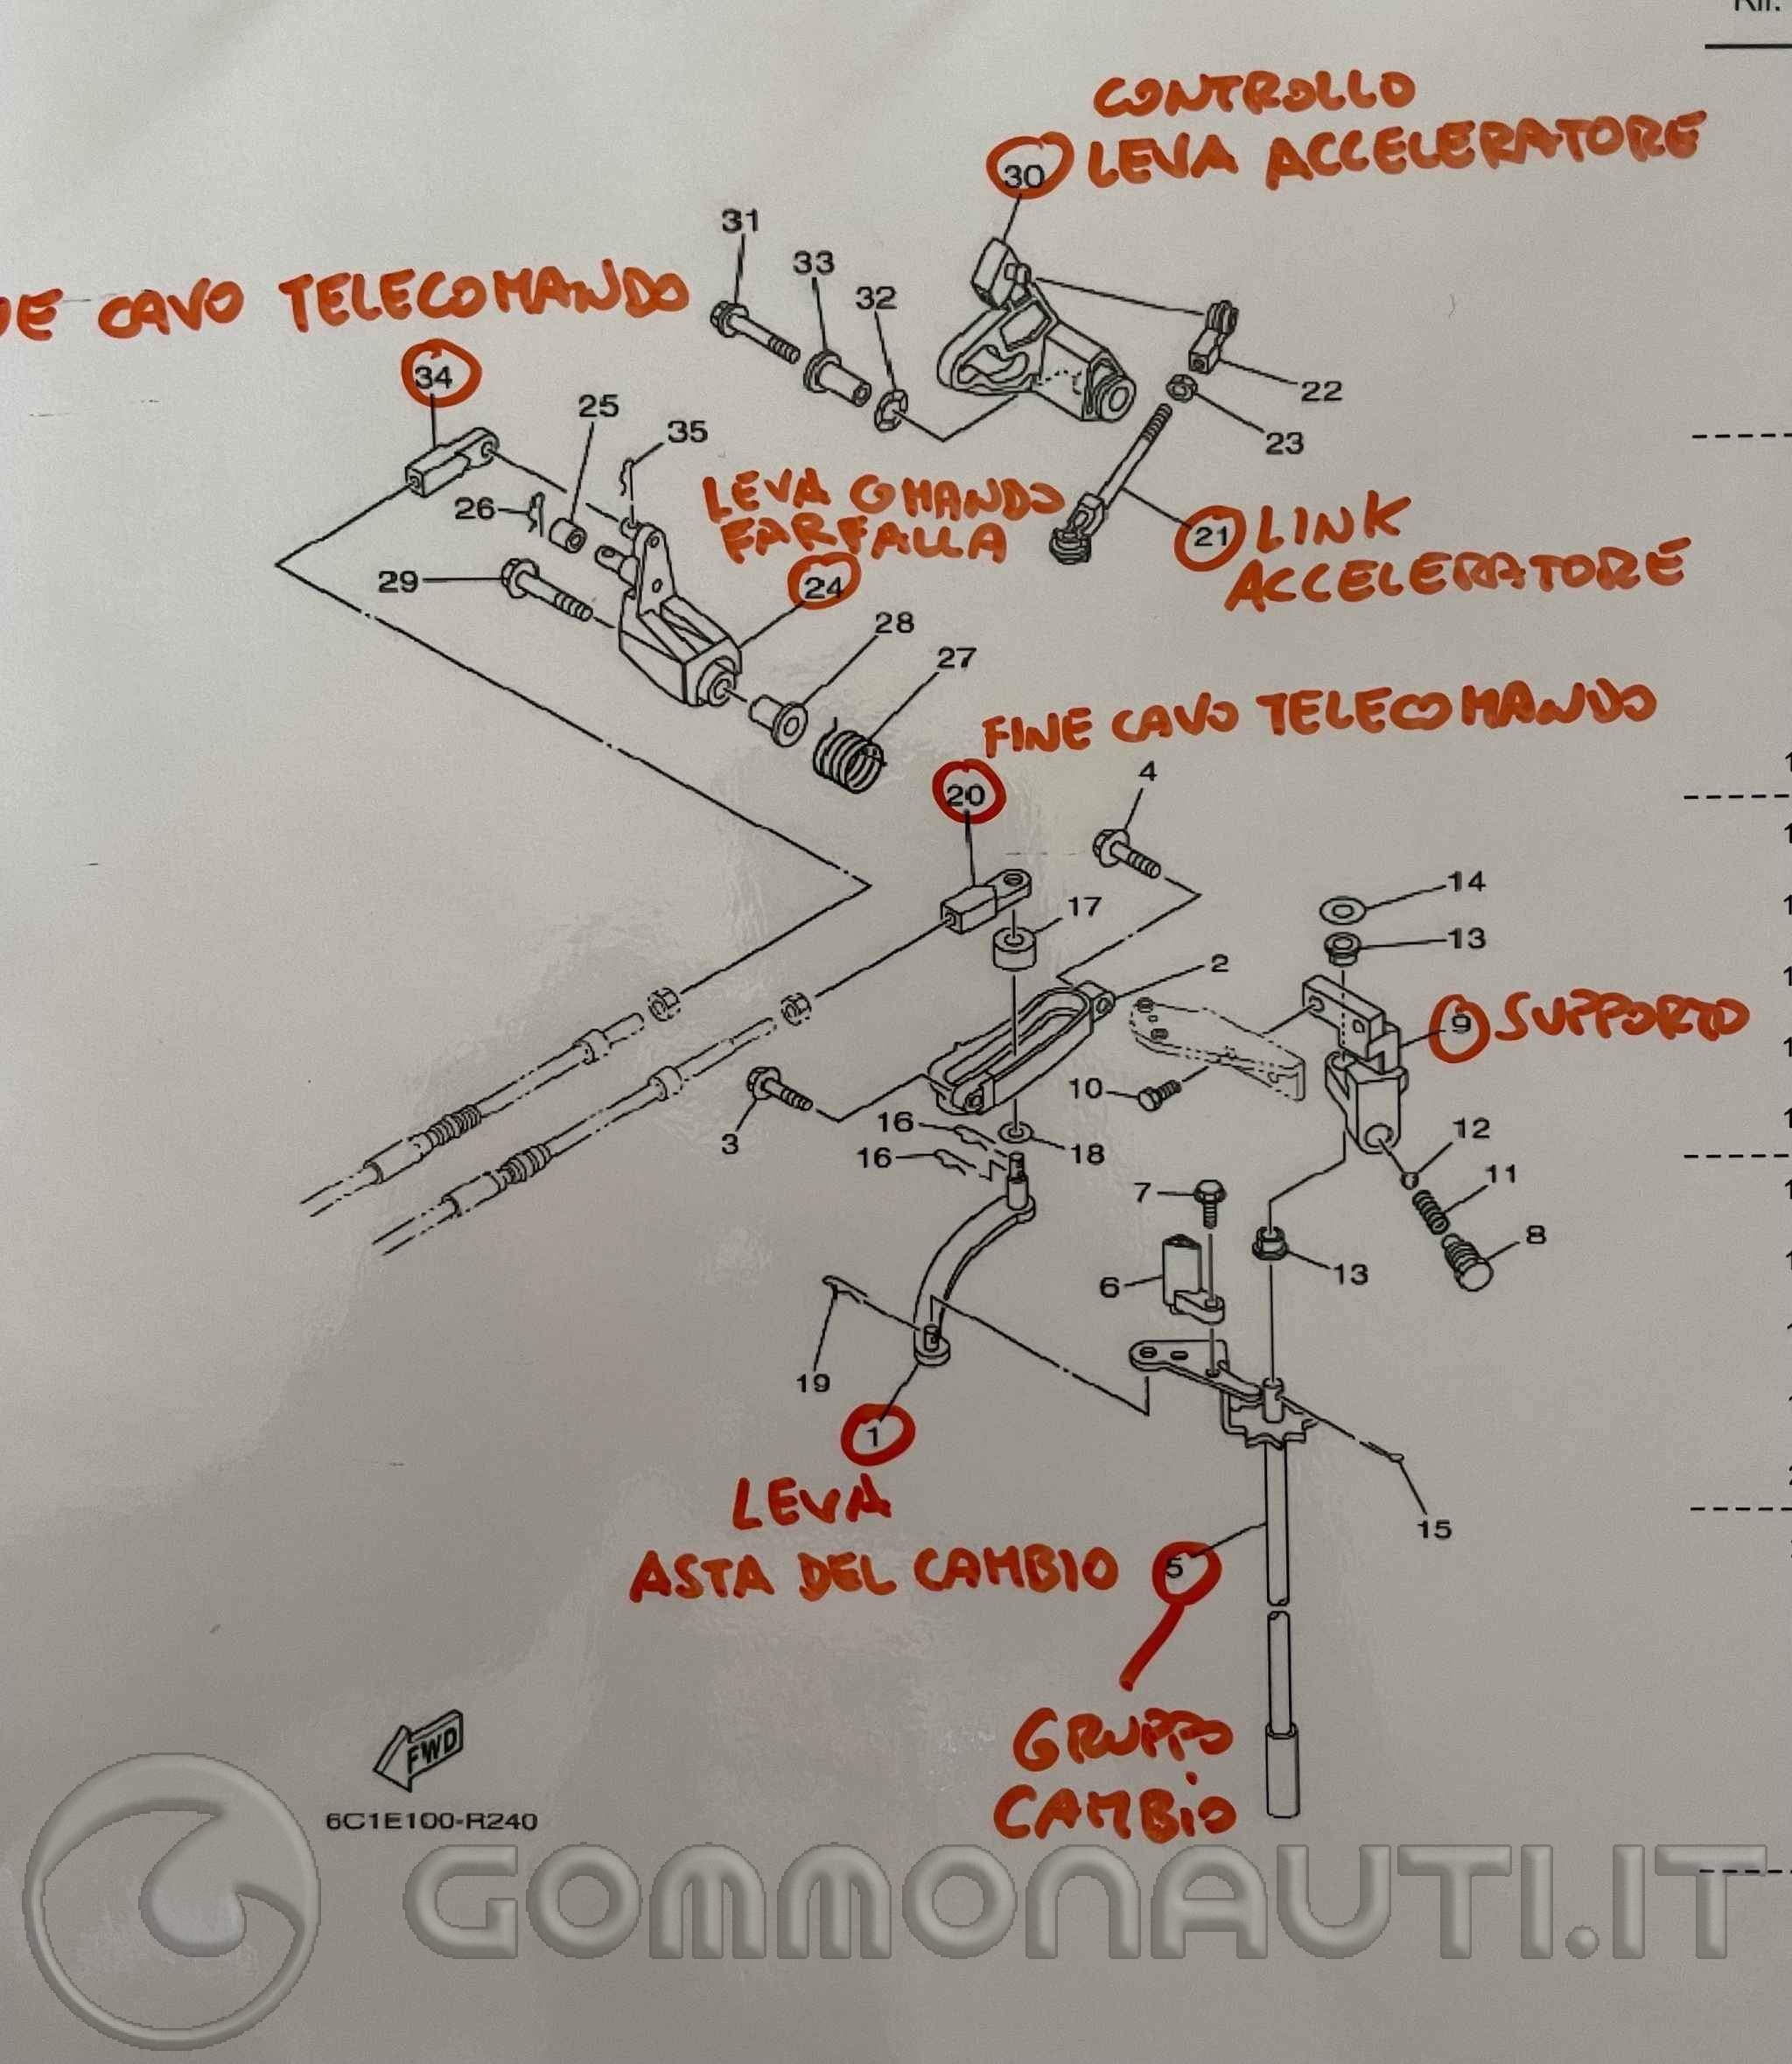 Rif.
CONTROLLO
30 LEVA ACCELERATORE
31
33
32
CAVO TELECOMANDO
34
25
35
22
23
26
LEVA COMANDO
FARFALLA
21 LINK
ACCELERATORE
29
24
28
27
FINE CAVO TELECOMANDO
20
4
17
14
13
2
9 SUPPORTO
10
3
16
16
18
12
11
7
8
6
13
19
1
LEVA
ASTA DEL CAMBIO
5
15
GRUPPO
CAMBIO
FWD
6C1E100-R240
GOMMONAUTI.IT